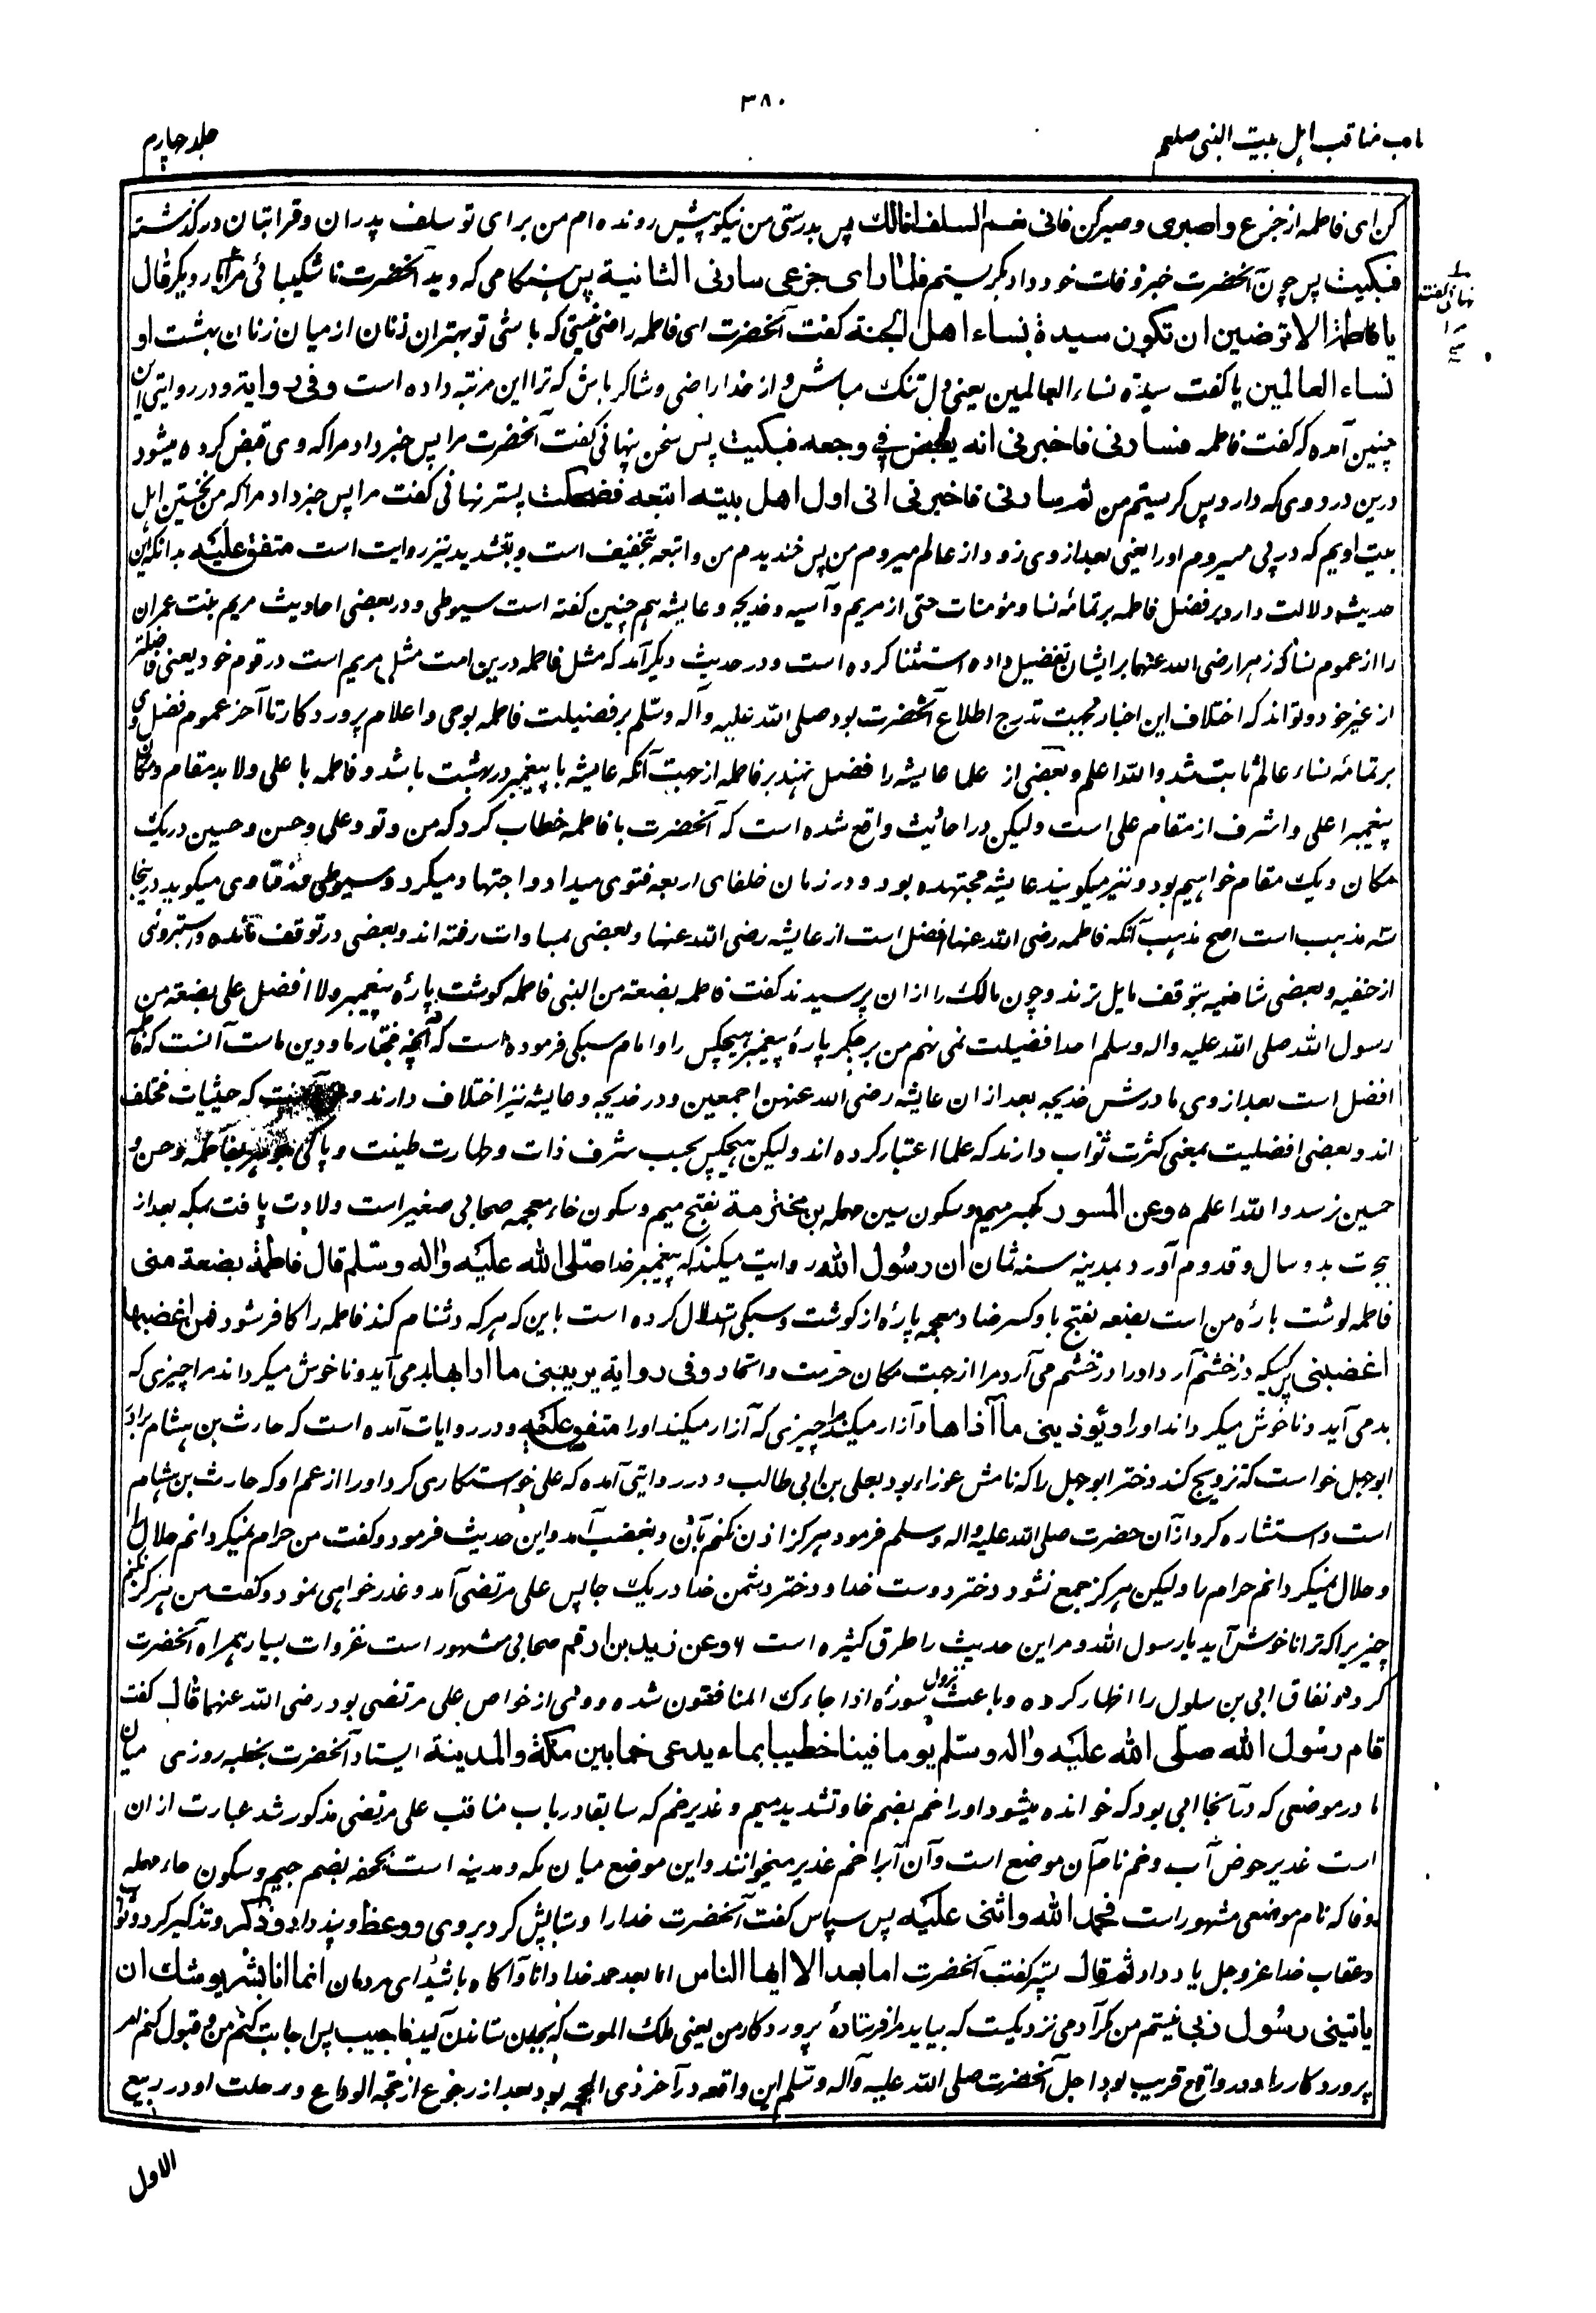 ۳۸۰
باب مناقب اہل بیت النبی صلعم
جلد چہارم
کن ای فاطمہ از جزع و اصبری و صبر کن فانی نعم السلف انا لک پس بدرستی من نیکو پیش روندہ ام من برای تو سلف پدران و قرابتان در گذشتہ
فبکیت پس چون آنحضرت خبر وفات خود داد بگریستم فلما رای جزعی سارنی الثانیة پس ہنگامی کہ دید آنحضرت ناشکیبائی مرا بار دیگر قال
نہانی گفت مرا
یا فاطمة الا ترضین ان تکون سیدة نساء اهل الجنة گفت آنحضرت ای فاطمہ راضی نیستی کہ باشی تو بہترین زنان از میان زنان بہشت او
نساء العالمین یا گفت سیدة نساء العالمین یعنی دل تنگ مباش و از خدا راضی و شاکر باش کہ ترا این مرتبہ دادہ است وفی روایة و در روایتی این
چنین آمدہ کہ گفت فاطمہ فسارنی فاخبرنی انه یقبض فی وجعه فبکیت پس سخن پنہانی گفت آنحضرت مرا پس خبر داد مرا کہ وی قبض کردہ میشود
درین درد وی کہ دارد پس گریستم من ثم سارنی فاخبرنی انی اول اهل بیته اتبعه فضحکت پستر نہانی گفت مرا پس خبر داد مرا کہ من نخستین اہل
بیت اویم کہ در پی میروم او را یعنی بعد از وی زود از عالم میروم من پس خندیدم من و اتبعہ بتخفیف است و بتشدید نیز روایت است متفق علیه بدانکہ این
حدیث دلالت دارد بر فضل فاطمہ بر تمامہ نسا و مؤمنات حتی از مریم و آسیہ و خدیجہ و عایشہ ہم چنین گفتہ است سیوطی و در بعضی احادیث مریم بنت عمران
را از عموم نسا کہ زہرا رضی اللہ عنہا بر ایشان تفضیل دادہ استثنا کردہ است و در حدیث دیگر آمد کہ مثل فاطمہ درین امت مثل مریم است در قوم خود یعنی فاضلتر
از غیر خود و تواند کہ اختلاف این اخبار بجہت تدرج اطلاع آنحضرت بود صلی اللہ علیہ وآلہ وسلم بر فضیلت فاطمہ بوحی و اعلام پروردگار تا آخر عموم فضل وی
بر تمامہ نساء عالم ثابت شد واللہ اعلم و بعضی از علما عایشہ را فضل نہند بر فاطمہ از جہت آنکہ عایشہ با پیغمبر در بہشت باشد و فاطمہ با علی و لابد مقام و مکان
پیغمبر اعلی و اشرف از مقام علی است ولیکن در احادیث واقع شدہ است کہ آنحضرت با فاطمہ خطاب کرد کہ من و تو و علی و حسن و حسین در یک
مکان و یک مقام خواہیم بود و نیز میگویند عایشہ مجتہدہ بود و در زمان خلفای اربعہ فتوی میداد و اجتہاد میکرد و سیوطی در فتاوی میگوید در اینجا
سہ مذہب است اصح مذہب آنکہ فاطمہ رضی اللہ عنہا افضل است از عایشہ رضی اللہ عنہا و بعضی بمساوات رفتہ اند و بعضی در توقف ماندہ و استروشنی
از حنفیہ و بعضی شافعیہ بتوقف مایل ترند و چون مالک را از ان پرسیدند گفت فاطمہ بضعة من النبی فاطمہ گوشت پارۂ پیغمبر ولا افضل علی بضعة من
رسول اللہ صلی اللہ علیہ والہ وسلم احدا فضیلت نمی نہم من بر جگر پارۂ پیغمبر ہیچکس را و امام سبکی فرمودہ است کہ آنچہ مختار ما و دین ماست آنست کہ فاطمہ
افضل است بعد از وی مادرش خدیجہ بعد از ان عایشہ رضی اللہ عنہن اجمعین و در خدیجہ و عایشہ نیز اختلاف دارند و کہ حیثیات مختلف
اند و بعضی افضلیت بمعنی کثرت ثواب دارند کہ علما اعتبار کردہ اند ولیکن ہیچکس بحسب شرف ذات و طہارت طینت و پاکی جوہر بفاطمہ و حسن و
حسین نرسد واللہ اعلم ۵ وعن المسور بکسر میم و سکون سین مہملہ بن مخرمة بفتح میم و سکون خاء معجمہ صحابی صغیر است ولادت یافت بمکہ بعد از
ہجرت بدو سال و قدوم آورد بمدینہ سنہ ثمان ان رسول الله روایت میکند کہ پیغمبر خدا صلی الله علیه واله وسلم قال فاطمة بضعة منی
فاطمہ گوشت پارہ من است بضعہ بفتح با و کسر ضاد معجمہ پارہ از گوشت و سبکی استدلال کردہ است باین کہ ہر کہ دشنام کند فاطمہ را کافر شود فمن اغضبها
اغضبنی پس کسیکہ در خشم آرد او را در خشم می آرد مرا از جہت مکان حرمت و اتحاد وفی روایة یریبنی ما ارابها بد می آید و ناخوش میگرداند مرا چیزی کہ
بد می آید و ناخوش میگرداند او را ویؤذینی ما آذاها و آزار میکند مرا چیزی کہ آزار میکند او را متفق علیه و در روایات آمدہ است کہ حارث بن ہشام برادر
ابو جہل خواست کہ تزویج کند دختر ابو جہل را کہ نامش عوزاء بود بعلی بن ابی طالب و در روایتی آمدہ کہ علی خواستگاری کرد او را از عم او کہ حارث بن ہشام
است و استشارہ کرد از آن حضرت صلی اللہ علیہ والہ وسلم فرمود ہرگز اذن نکنم بآن و بغضب آمد و این حدیث فرمود و گفت من حرام نمیگردانم حلال را
و حلال نمیگردانم حرام را ولیکن ہرگز جمع نشود دختر دوست خدا و دختر دشمن خدا در یک جا پس علی مرتضی آمد و عذر خواہی نمود و گفت من ہرگز نکنم
چیزیرا کہ ترا ناخوش آید یا رسول اللہ و مر این حدیث را طرق کثیرہ است ۶ وعن زید بن ارقم صحابی مشہور است غزوات بسیار ہمراہ آنحضرت
کردہ و نفاق ابی بن سلول را اظہار کردہ و باعث نزول سورۂ اذا جاءک المنافقون شدہ و وی از خواص علی مرتضی بود رضی اللہ عنہما قال گفت
قام رسول الله صلی الله علیه واله وسلم یوما فینا خطیبا بماء یدعی خما بین مکة والمدینة ایستاد آنحضرت بخطبہ روزی میان
ما در موضعی کہ در آنجا آبی بود کہ خواندہ میشود او را خم بضم خا و تشدید میم و غدیر خم کہ سابقا در باب مناقب علی مرتضی مذکور شد عبارت از ان
است غدیر حوض آب و خم نام آن موضع است و آن آبرا خم غدیر میخوانند و این موضع میان مکہ و مدینہ است بجحفہ بضم جیم و سکون حاء مہملہ
وفا کہ نام موضعی مشہور است فحمد الله واثنی علیه پس سپاس گفت آنحضرت خدا را و ستایش کرد بر وی ووعظ و پند داد وذکر و تذکیر کرد و ثواب
و عقاب خدا عز و جل یاد داد ثم قال پستر گفت آنحضرت اما بعد الا ایها الناس اما بعد حمد خدا دانا و آگاہ باشید ای مردمان انما انا بشر یوشک ان
یاتینی رسول ربی نیستم من مگر آدمی نزدیکست کہ بیاید مرا فرستادۂ پروردگار من یعنی ملک الموت کہ بجان ستاندن آید فاجیب پس اجابت کنم من و قبول کنم امر
پروردگار را و در واقع قریب بود اجل آنحضرت صلی اللہ علیہ وآلہ وسلم این واقعہ در آخر ذی الحجہ بود بعد از رجوع از حجۃ الوداع و رحلت او در ربیع
الاول